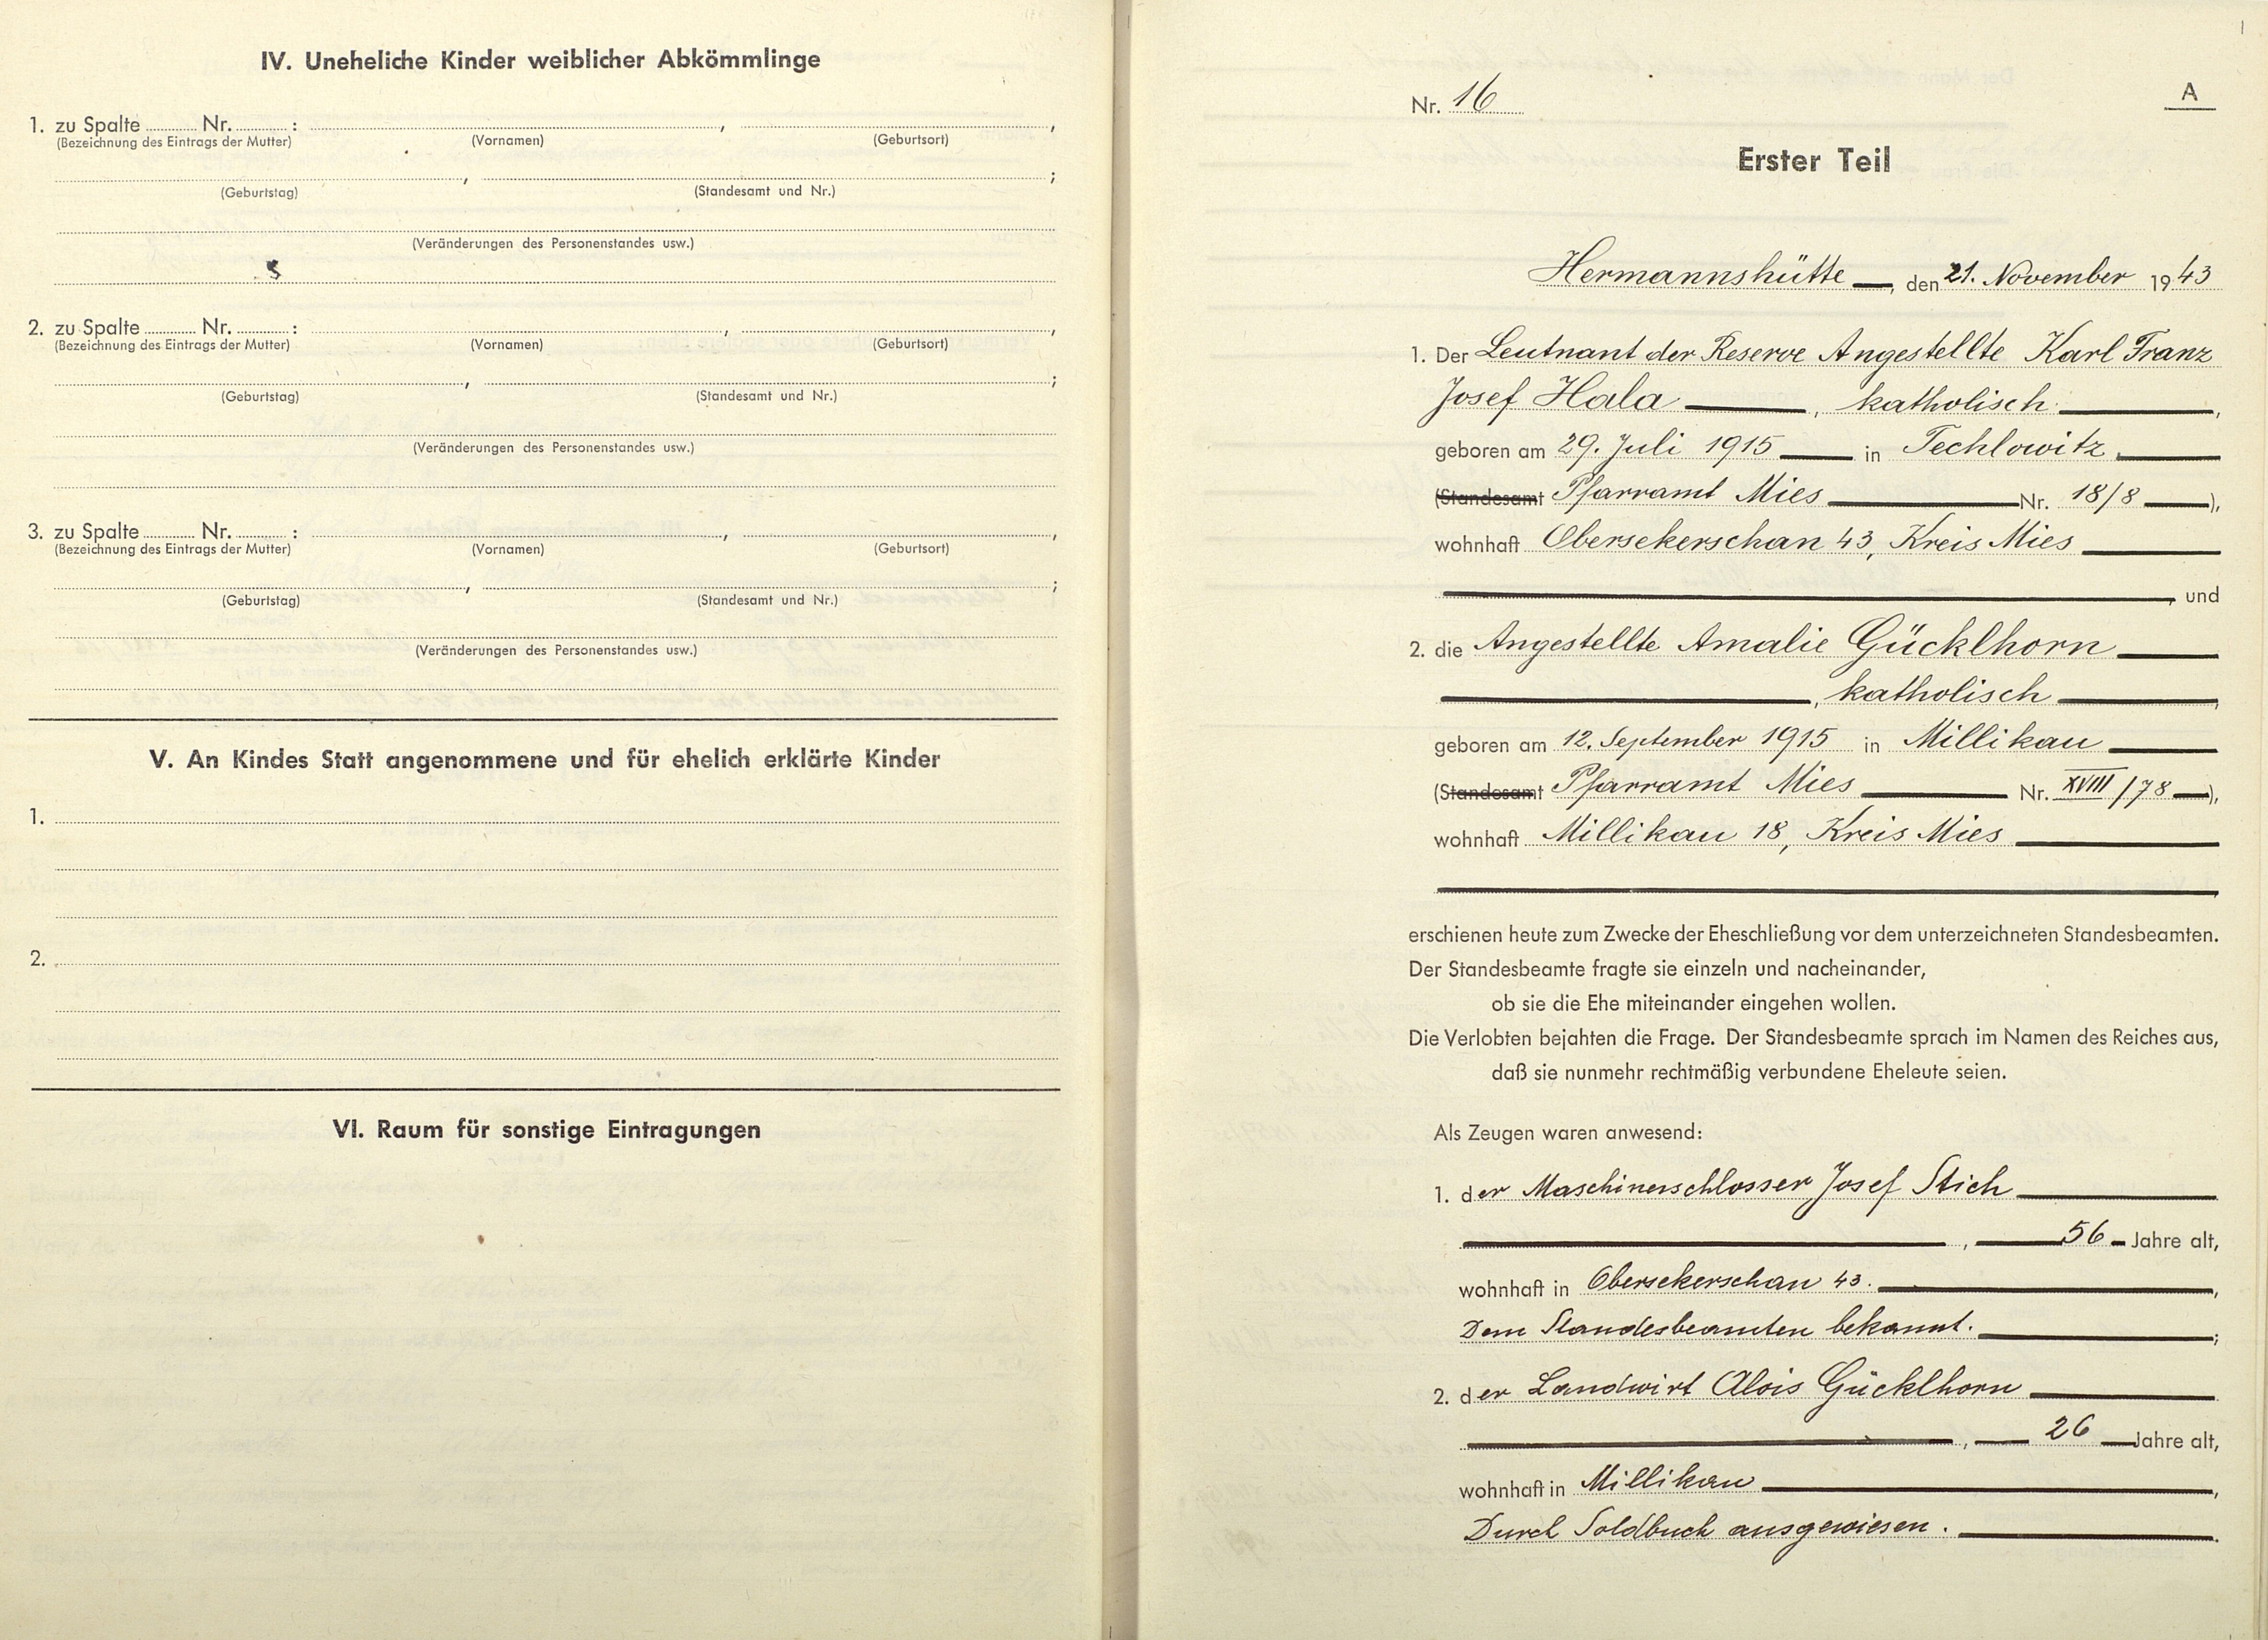 IV. Uneheliche Kinder weiblicher Abkömmlinge
1. zu Spalte ........ Nr. ........ : ........ , ........ ,
(Bezeichnung des Eintrags der Mutter) (Vornamen) (Geburtsort)
........ , ........ ;
(Geburtstag) (Standesamt und Nr.)
(Veränderungen des Personenstandes usw.)
2. zu Spalte ........ Nr. ........ : ........ , ........ ,
(Bezeichnung des Eintrags der Mutter) (Vornamen) (Geburtsort)
........ , ........ ;
(Geburtstag) (Standesamt und Nr.)
(Veränderungen des Personenstandes usw.)
3. zu Spalte ........ Nr. ........ : ........ , ........ ,
(Bezeichnung des Eintrags der Mutter) (Vornamen) (Geburtsort)
........ , ........ ;
(Geburtstag) (Standesamt und Nr.)
(Veränderungen des Personenstandes usw.)
V. An Kindes Statt angenommene und für ehelich erklärte Kinder
1.
2.
VI. Raum für sonstige Eintragungen
Nr. 16
A
Erster Teil
Hermannshütte, den 21. November 1943
1. Der Leutnant der Reserve Angestellte Karl Franz
Josef Hala, katholisch,
geboren am 29. Juli 1915 in Techlowitz
(Standesamt Pfarramt Mies Nr. 18/8),
wohnhaft Obersekerschan 43, Kreis Mies
, und
2. die Angestellte Amalie Gücklhorn
, katholisch,
geboren am 12. September 1915 in Millikau
(Standesamt Pfarramt Mies Nr. XVIII/78),
wohnhaft Millikau 18, Kreis Mies
,
erschienen heute zum Zwecke der Eheschließung vor dem unterzeichneten Standesbeamten.
Der Standesbeamte fragte sie einzeln und nacheinander,
ob sie die Ehe miteinander eingehen wollen.
Die Verlobten bejahten die Frage. Der Standesbeamte sprach im Namen des Reiches aus,
daß sie nunmehr rechtmäßig verbundene Eheleute seien.
Als Zeugen waren anwesend:
1. der Maschinenschlosser Josef Stich
, 56 Jahre alt,
wohnhaft in Obersekerschan 43.,
Dem Standesbeamten bekannt. ;
2. der Landwirt Alois Gücklhorn
, 26 Jahre alt,
wohnhaft in Millikau,
Durch Soldbuch ausgewiesen.